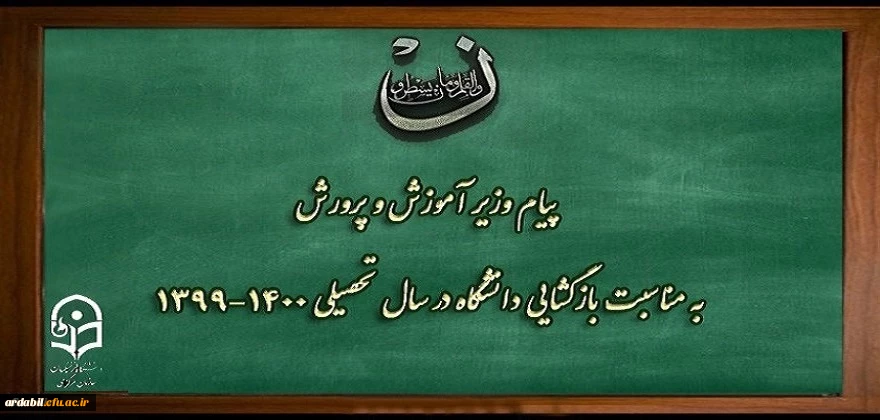 ن والقلم وما يسطرون
پیام وزیر آموزش و پرورش
به مناسبت بازگشایی دانشگاه در سال تحصیلی ۱۴۰۰-۱۳۹۹
دانشگاه فرهنگیان
سازمان مرکزی
ardabil.cfu.ac.ir